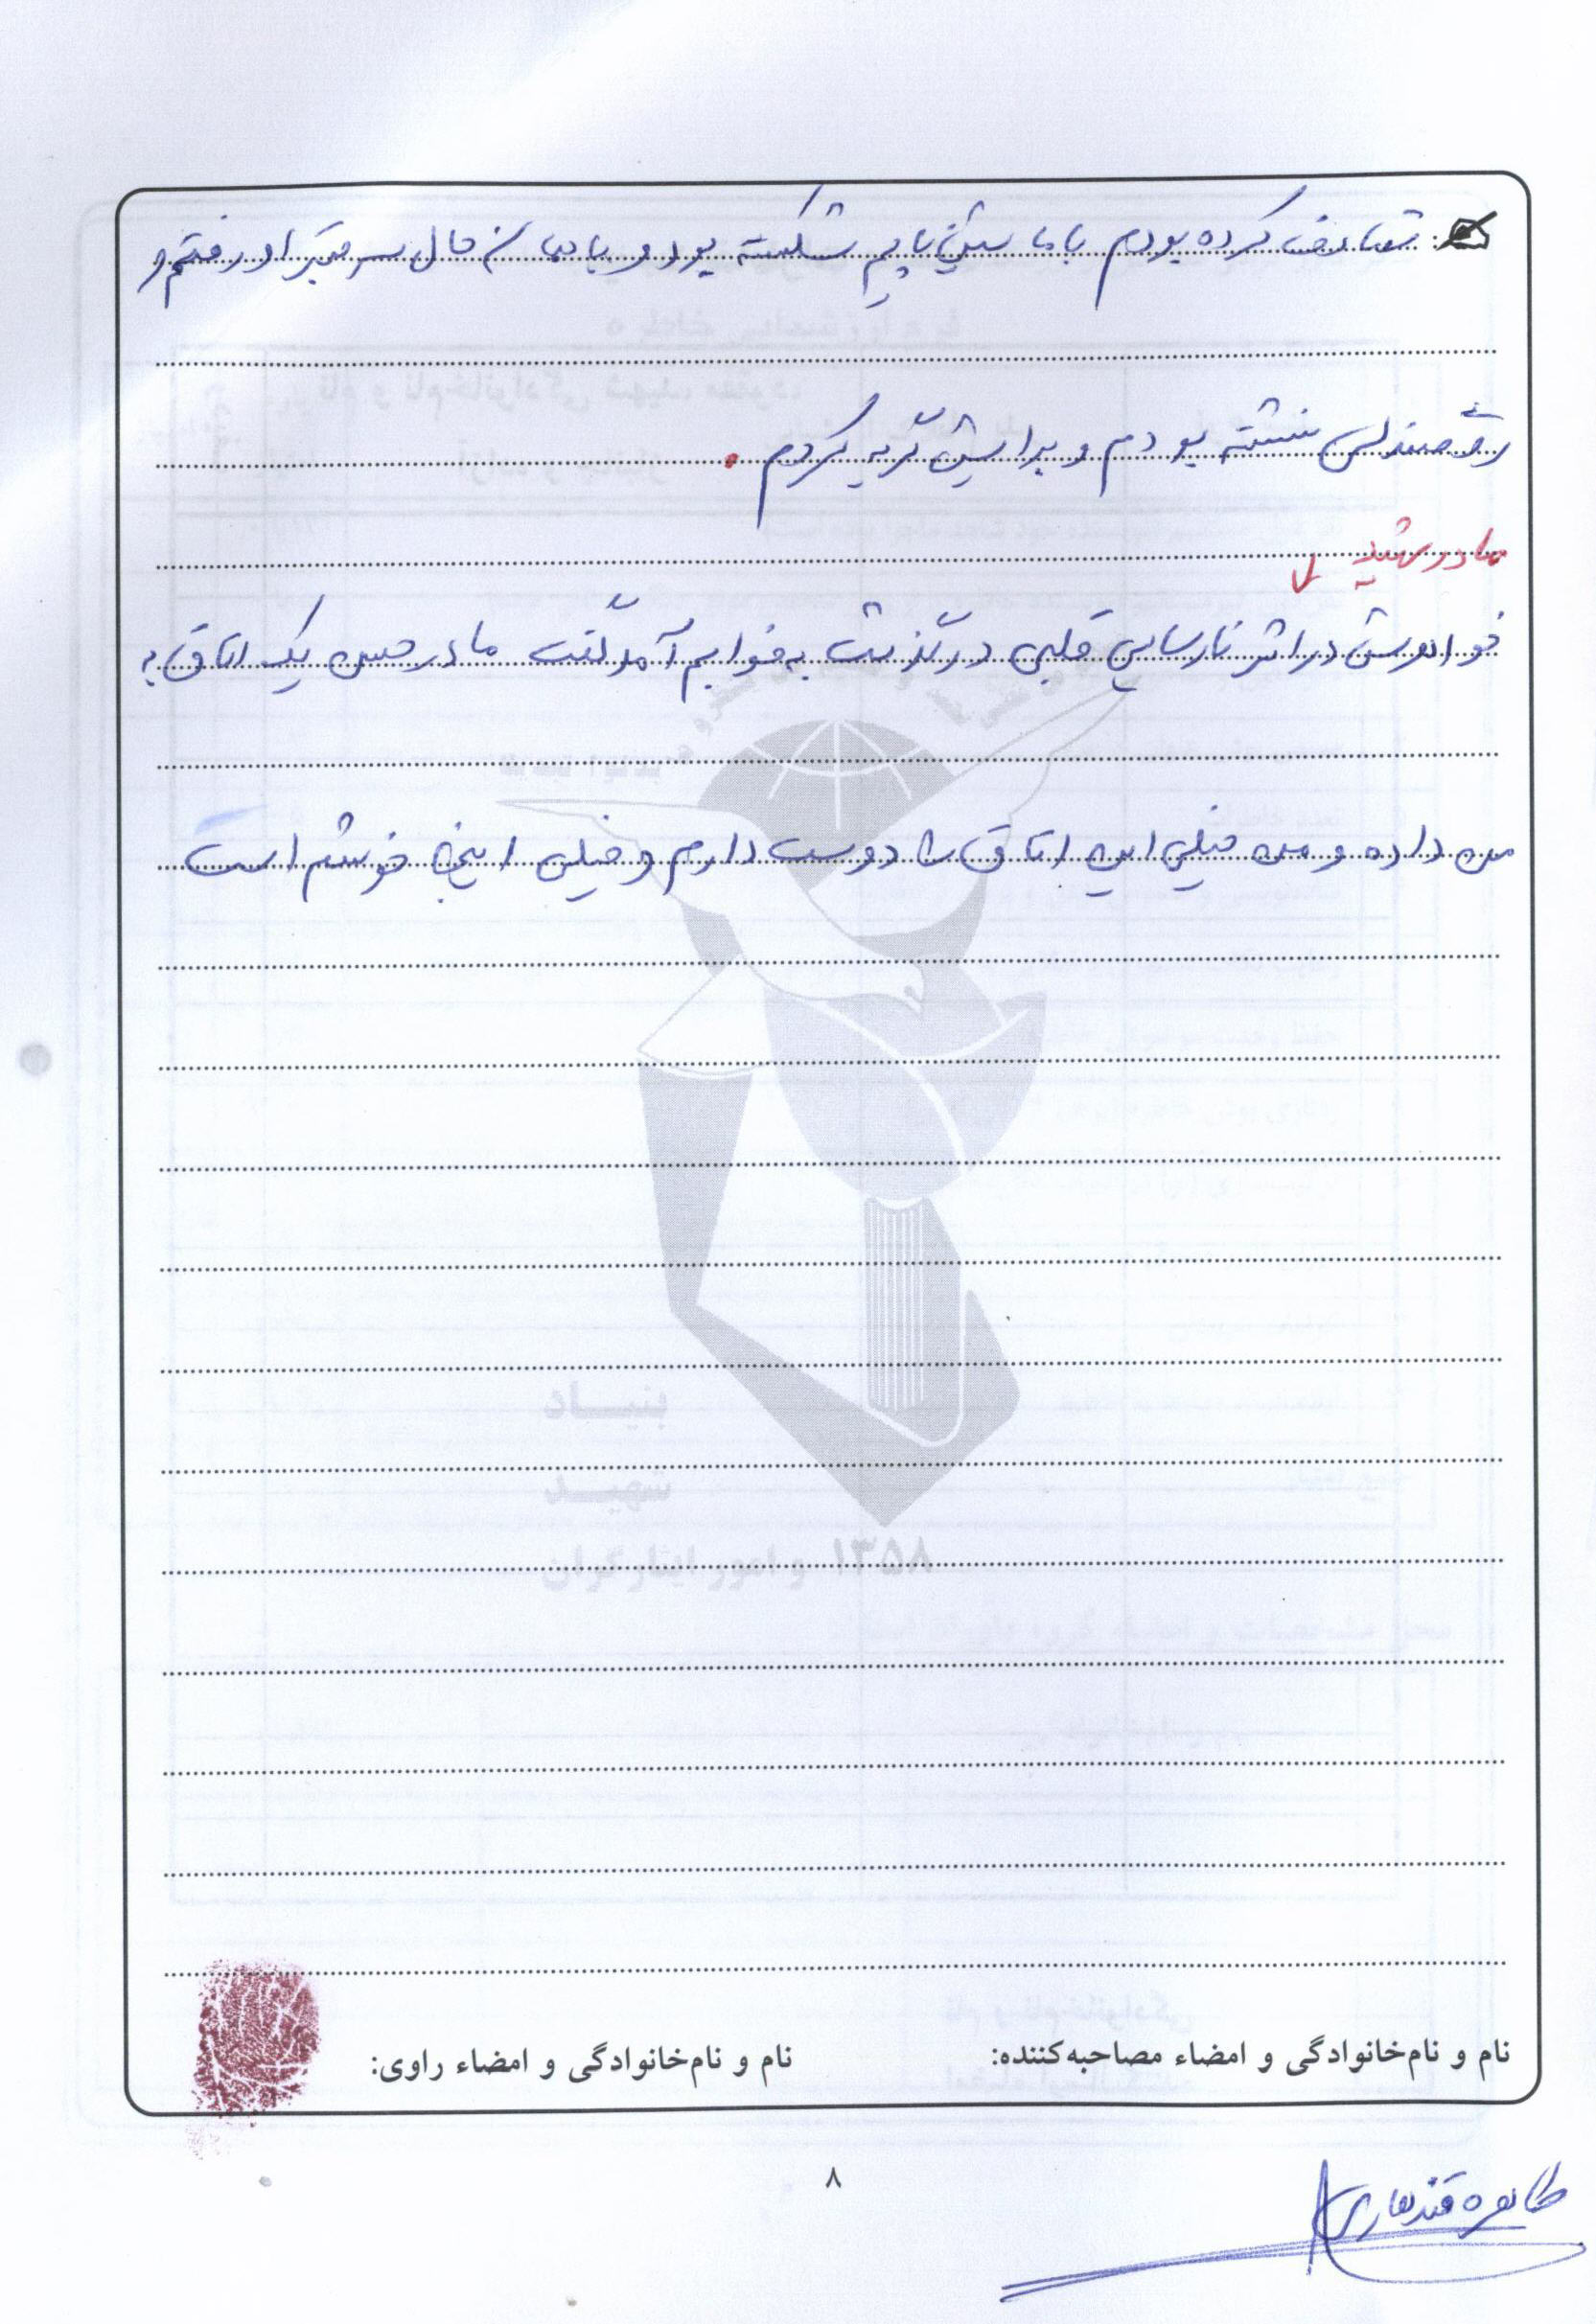 تصادف کرده بودم با ماشین پایم شکسته بود و با همان حال سر قبر او رفتم و
روی صندلی نشسته بودم و برایش گریه کردم.
مادر شهید
خواهرش در اثر نارسایی قلبی درگذشت به خوابم آمد گفت مادر حسن یک اتاق به
من داده و من خیلی این اتاق را دوست دارم و خیلی اینجا خوشم است
نام و نام‌خانوادگی و امضاء مصاحبه‌کننده:
نام و نام‌خانوادگی و امضاء راوی:
۸
طاهره قندهاری